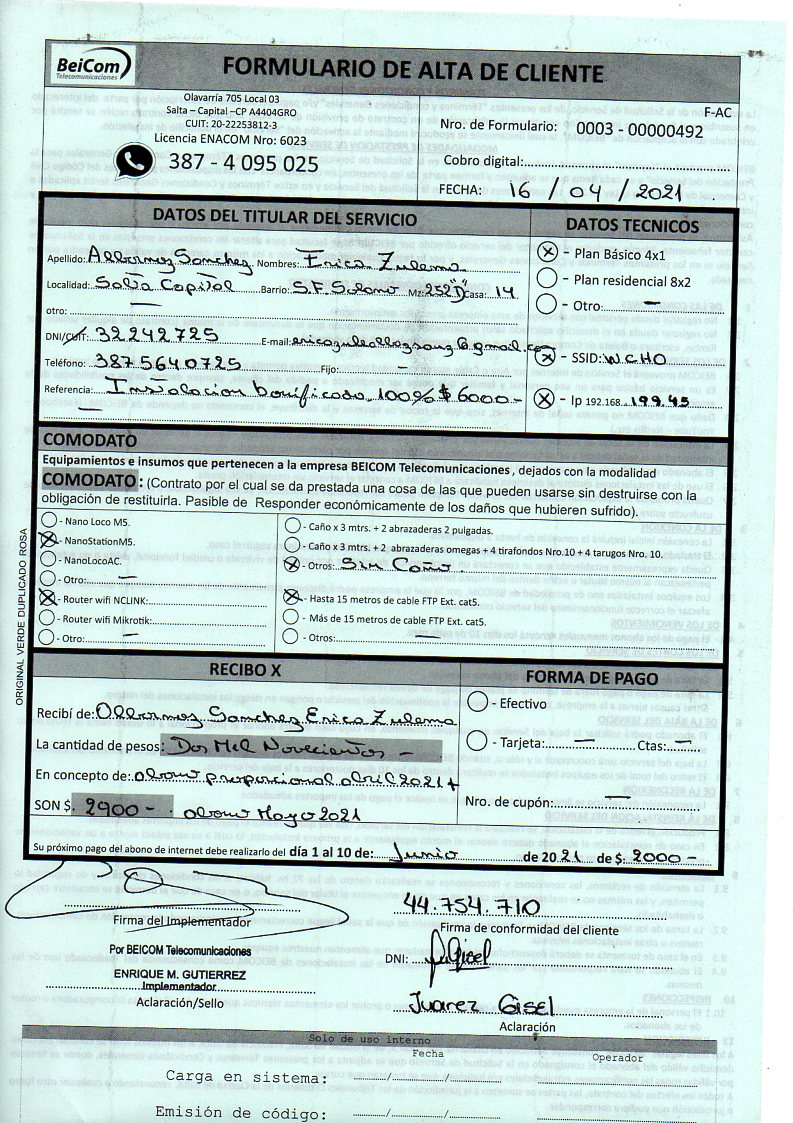 BeiCom
Telecomunicaciones
FORMULARIO DE ALTA DE CLIENTE
Olavarría 705 Local 03
Salta – Capital –CP A4404GRO
CUIT: 20-22253812-3
Licencia ENACOM Nro: 6023
387 - 4 095 025
F-AC
Nro. de Formulario: 0003 - 00000492
Cobro digital:
FECHA: 16 / 04 / 2021
DATOS DEL TITULAR DEL SERVICIO
Apellido: Albornoz Sanchez Nombres: Erica Zulema
Localidad: Salta Capital Barrio: S.F. Solano Mz: 252 "D" Casa: 14
otro: —
DNI/CUIT: 32242725 E-mail:
Teléfono: 3875640725 Fijo: —
Referencia: Instalacion bonificada 100% $6000.-
DATOS TECNICOS
- Plan Básico 4x1
- Plan residencial 8x2
- Otro: —
- SSID: WCHO
- Ip 192.168. 199.45
COMODATO
Equipamientos e insumos que pertenecen a la empresa BEICOM Telecomunicaciones, dejados con la modalidad
COMODATO: (Contrato por el cual se da prestada una cosa de las que pueden usarse sin destruirse con la
obligación de restituirla. Pasible de Responder económicamente de los daños que hubieren sufrido).
- Nano Loco M5.
- NanoStationM5.
- NanoLocoAC.
- Otro: —
- Router wifi NCLINK:
- Router wifi Mikrotik:
- Otro: —
- Caño x 3 mtrs. + 2 abrazaderas 2 pulgadas.
- Caño x 3 mtrs. + 2 abrazaderas omegas + 4 tirafondos Nro.10 + 4 tarugos Nro. 10.
- Otros: Sin Caño
- Hasta 15 metros de cable FTP Ext. cat5.
- Más de 15 metros de cable FTP Ext. cat5.
- Otros: —
ORIGINAL VERDE DUPLICADO ROSA
RECIBO X
Recibí de: Albornoz Sanchez Erica Zulema
La cantidad de pesos: Dos Mil Novecientos -
En concepto de: abono proporcional abril 2021 +
SON $. 2900 - abono Mayo 2021
FORMA DE PAGO
- Efectivo
- Tarjeta: — Ctas: —
Nro. de cupón: —
Su próximo pago del abono de internet debe realizarlo del día 1 al 10 de: Junio de 2021 de $: 2000-
Firma del Implementador
Por BEICOM Telecomunicaciones
ENRIQUE M. GUTIERREZ
Implementador
Aclaración/Sello
44.754.710
Firma de conformidad del cliente
DNI:
Juarez Gisel
Aclaración
Solo de uso interno
Fecha Operador
Carga en sistema: / /
Emisión de código: / /